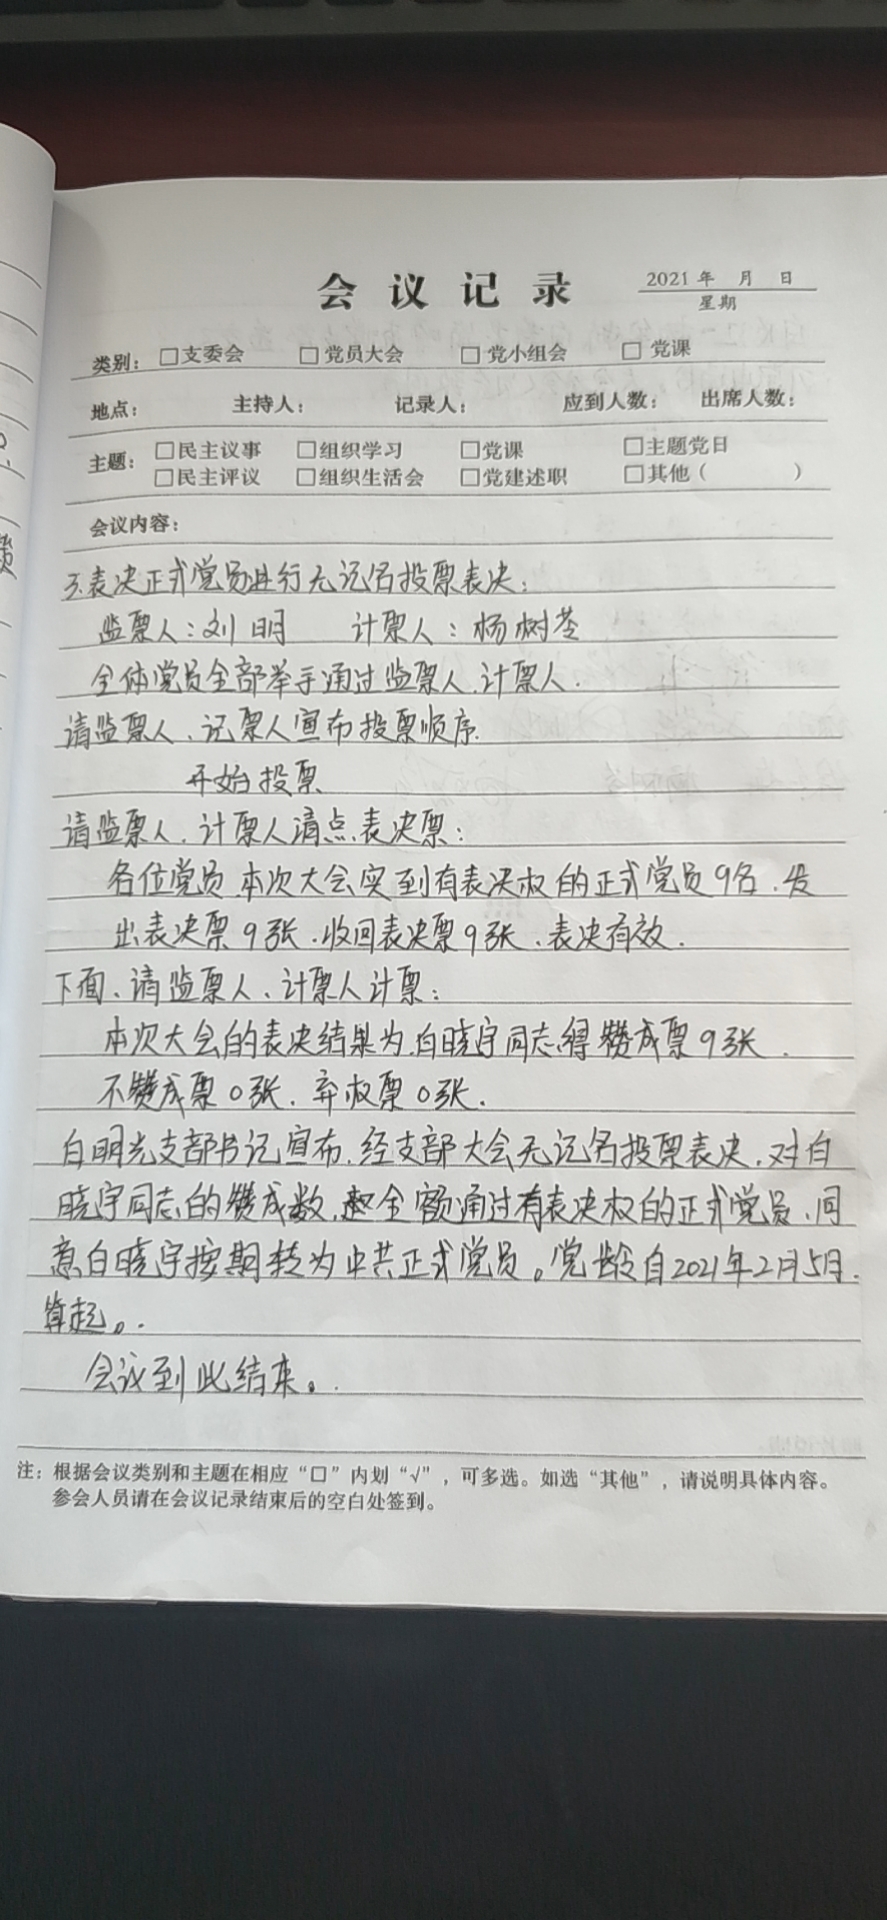 会议记录
2021年 月 日
星期
类别: □支委会 □党员大会 □党小组会 □党课
地点: 主持人: 记录人: 应到人数: 出席人数:
主题: □民主议事 □组织学习 □党课 □主题党日
□民主评议 □组织生活会 □党建述职 □其他( )
会议内容:
3.表决正式党员进行无记名投票表决:
监票人:刘明 计票人:杨树苓
全体党员全部举手通过监票人.计票人.
请监票人、记票人宣布投票顺序
开始投票
请监票人.计票人清点表决票:
各位党员.本次大会实到有表决权的正式党员9名.发
出表决票9张.收回表决票9张、表决有效.
下面、请监票人、计票人计票:
本次大会的表决结果为.白晓宇同志得赞成票9张.
不赞成票0张.弃权票0张.
白明光支部书记宣布.经支部大会无记名投票表决.对白
晓宇同志的赞成数.全额通过有表决权的正式党员、同
意白晓宇按期转为中共正式党员。党龄自2021年2月5日.
算起。.
会议到此结束。.
注:根据会议类别和主题在相应“□”内划“√”,可多选。如选“其他”,请说明具体内容。
参会人员请在会议记录结束后的空白处签到。